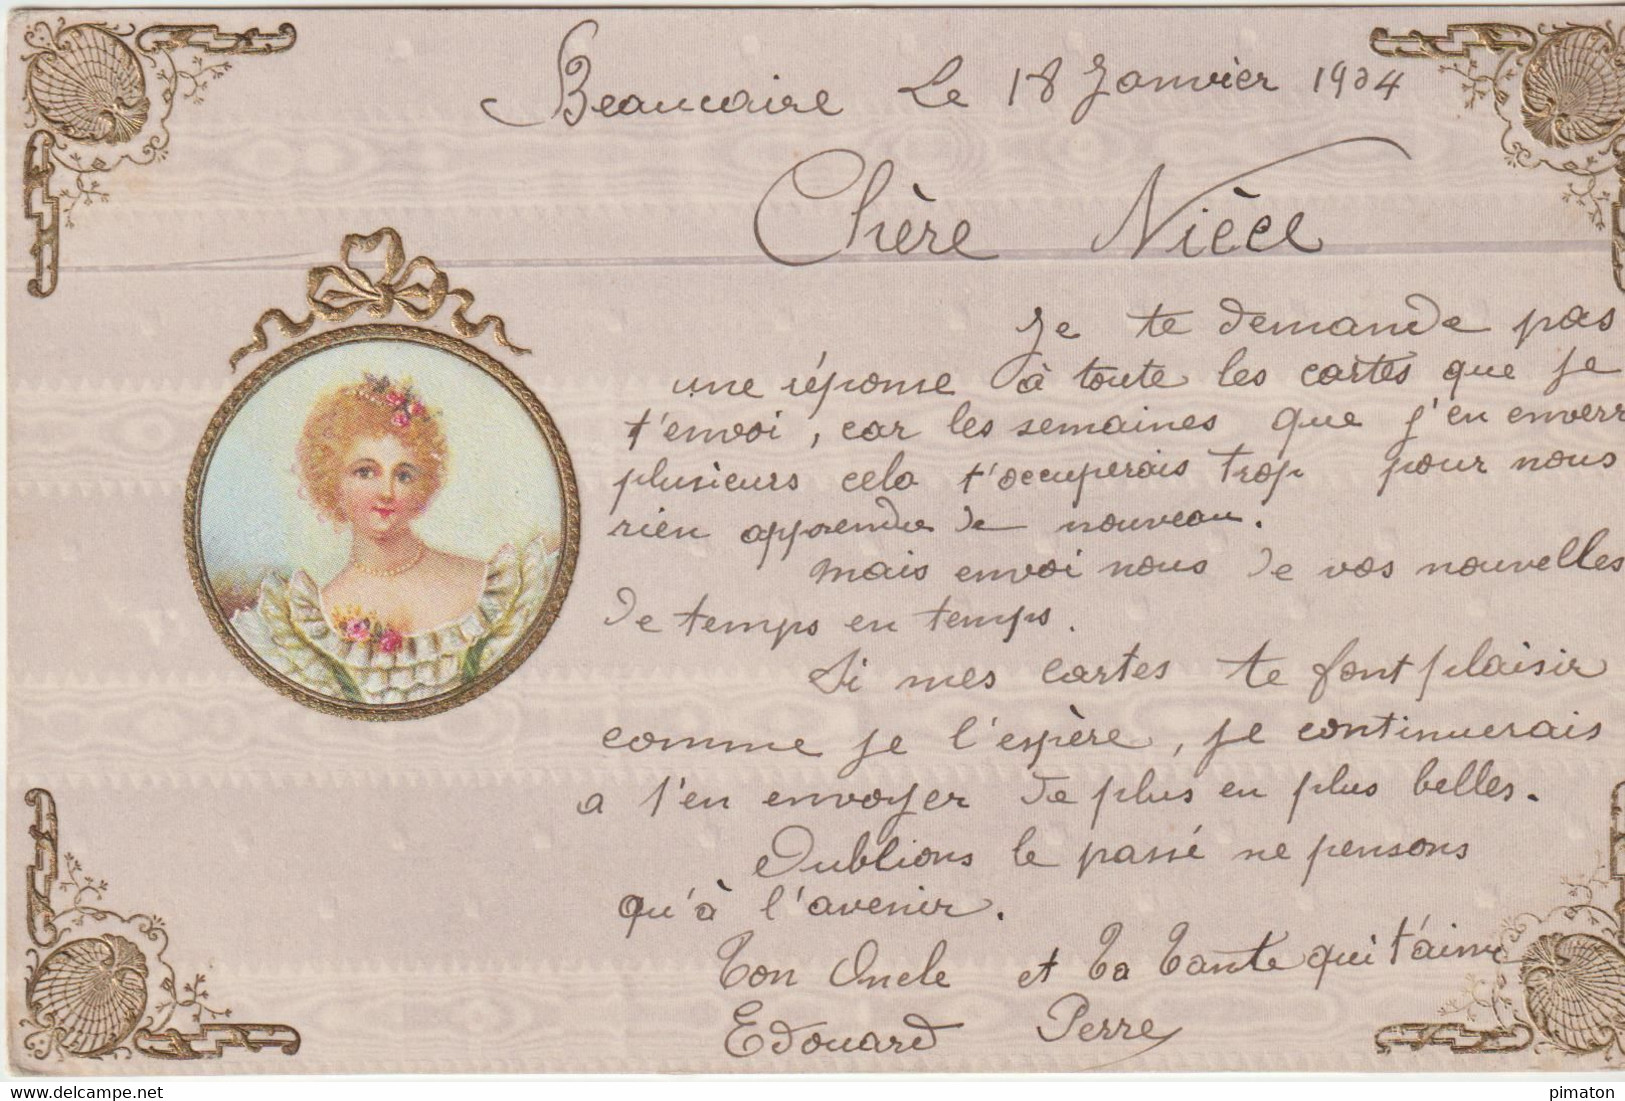 Beaucaire Le 18 Janvier 1904
Chère Nièce
Je te demande pas
une réponse à toute les cartes que je
t'envoi, car les semaines que j'en enverr
plusieurs cela t'occuperais trop pour nous
rien apprendre de nouveau.
Mais envoi nous de vos nouvelles
de temps en temps.
Si mes cartes te font plaisir
comme je l'espère, je continuerais
a t'en envoyer de plus en plus belles.
Oublions le passé ne pensons
qu'à l'avenir.
Ton Oncle et Ta Tante qui t'aime
Edouard Perre
www.delcampe.net
pimaton